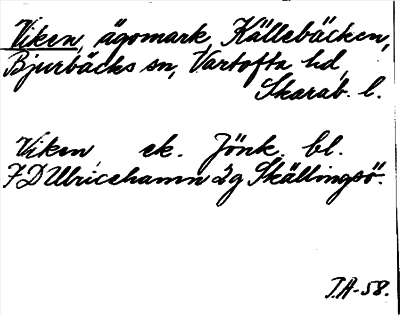 Viken, ägomark, Källebäcken,
Bjurbäcks sn, Vartofta hd,
Skarab. l.
Viken ek. Jönk. bl.
7D Ulricehamn 2g Skällingsö.
T.A-58.